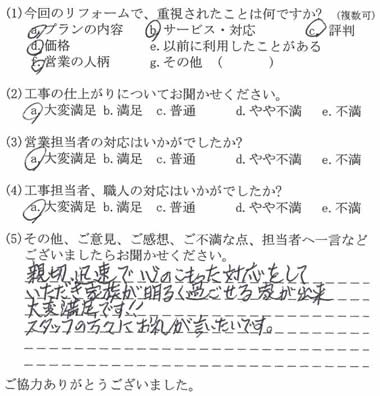 (1)今回のリフォームで、重視されたことは何ですか? (複数可)
a.プランの内容 b.サービス・対応 c.評判
d.価格 e.以前に利用したことがある
f.営業の人柄 g.その他 ( )
(2)工事の仕上がりについてお聞かせください。
a.大変満足 b.満足 c.普通 d.やや不満 e.不満
(3)営業担当者の対応はいかがでしたか?
a.大変満足 b.満足 c.普通 d.やや不満 e.不満
(4)工事担当者、職人の対応はいかがでしたか?
a.大変満足 b.満足 c.普通 d.やや不満 e.不満
(5)その他、ご意見、ご感想、ご不満な点、担当者へ一言など
ございましたらお聞かせください。
親切、迅速で心のこもった対応をして
いただき家族が明るく過ごせる家が出来
大変満足です!!
スタッフの方々にお礼が言いたいです。
ご協力ありがとうございました。